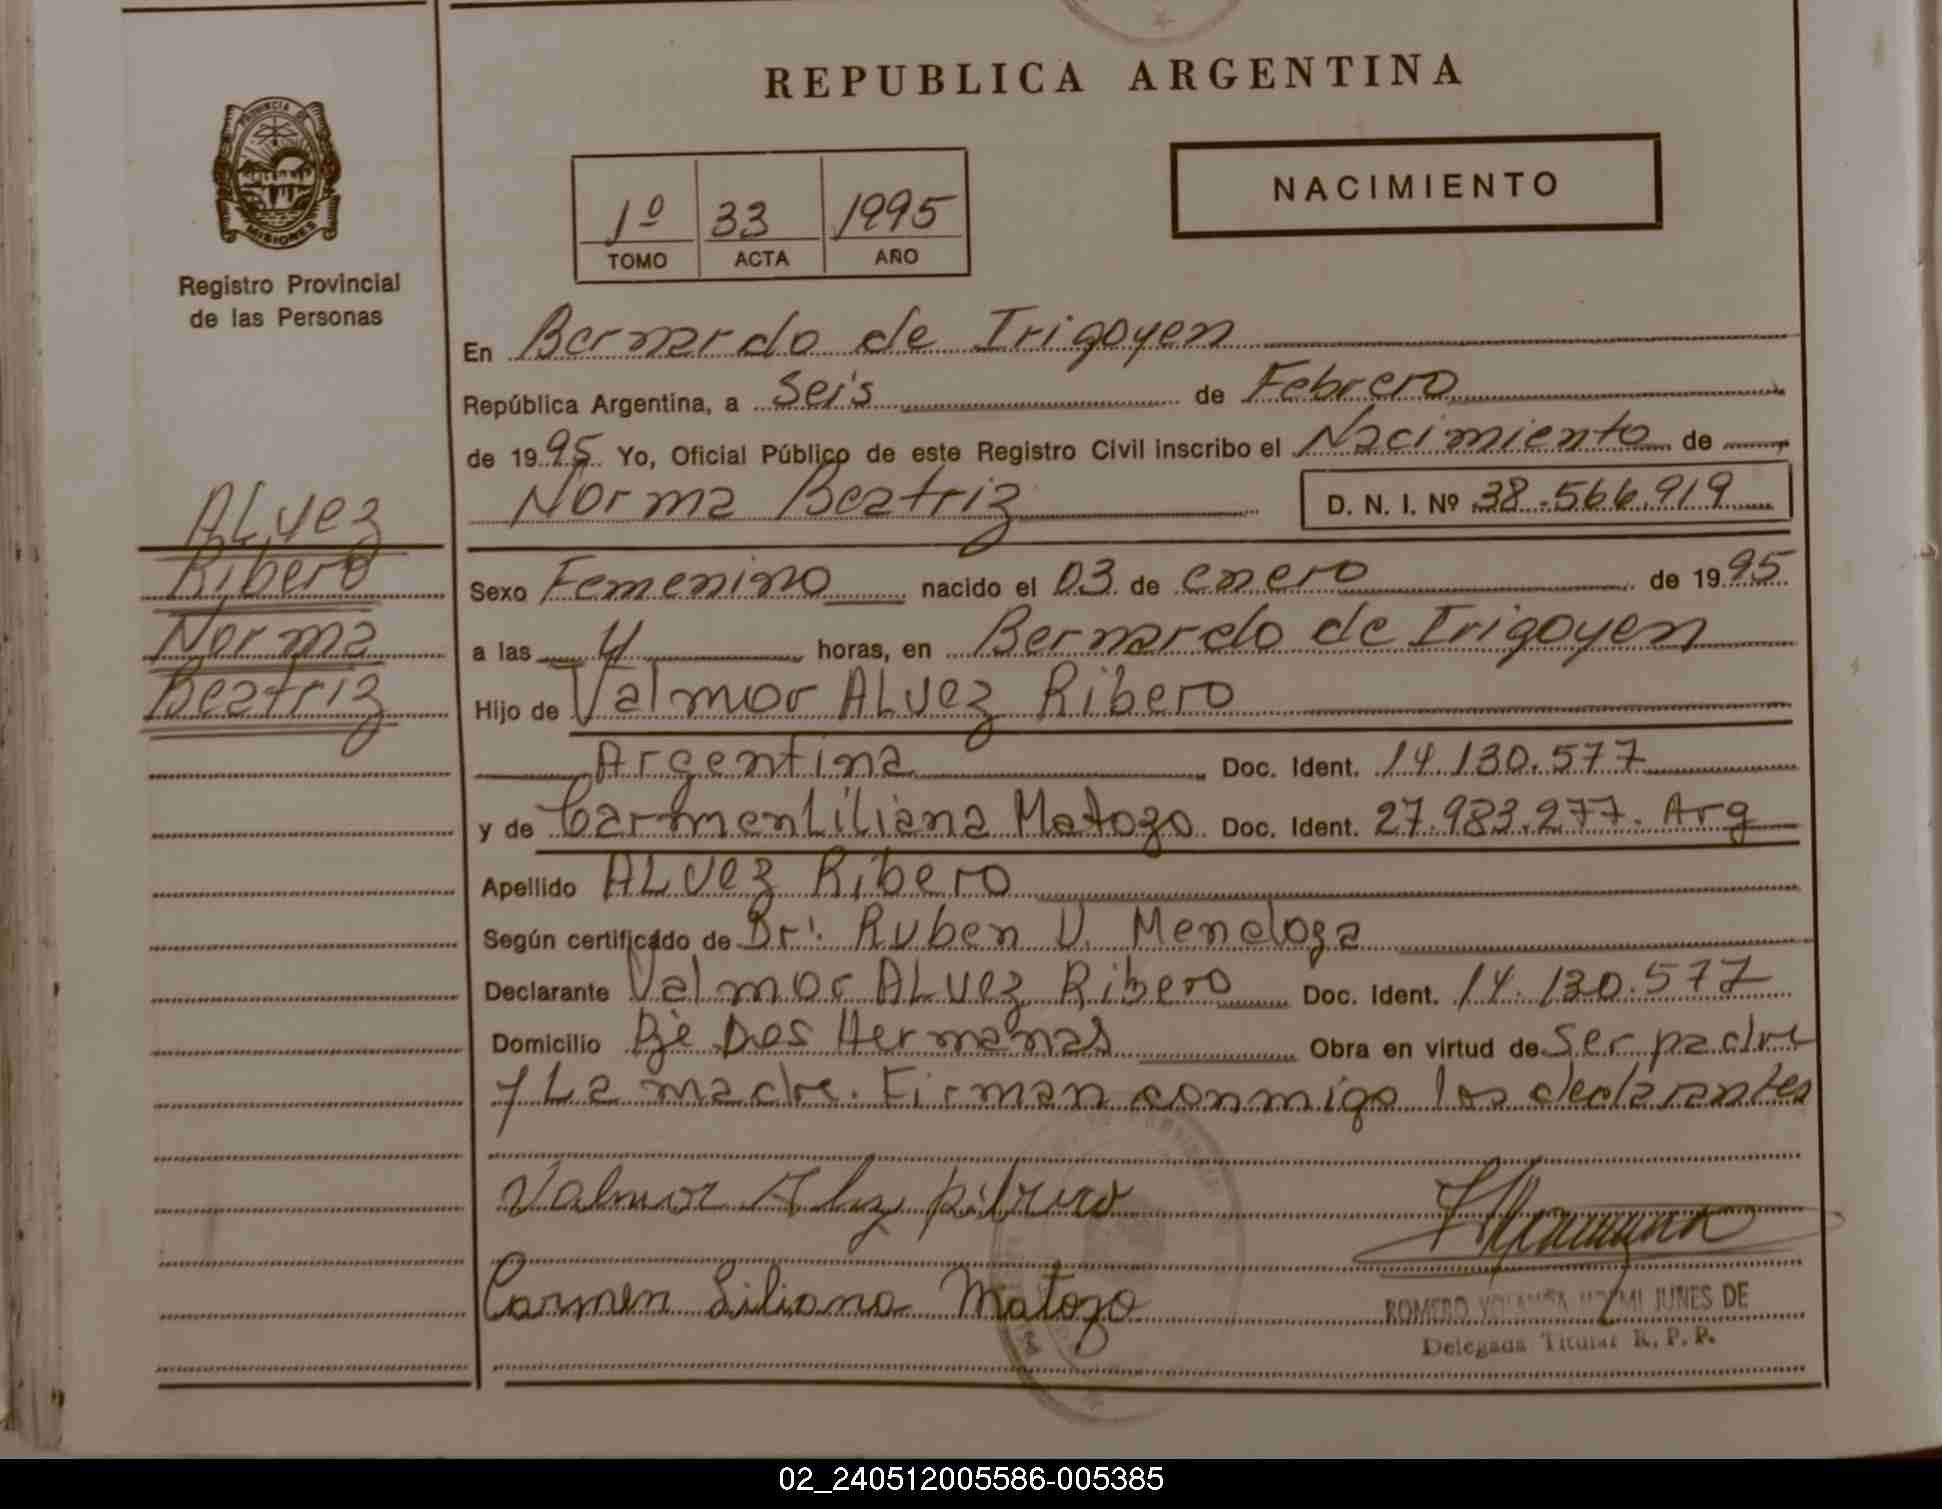 REPUBLICA ARGENTINA
PROVINCIA DE
MISIONES
Registro Provincial
de las Personas
1º 33 1995
TOMO ACTA AÑO
NACIMIENTO
En Bernardo de Irigoyen
República Argentina, a Seis de Febrero
de 1995 Yo, Oficial Público de este Registro Civil inscribo el Nacimiento de
Norma Beatriz D. N. I. Nº 38.566.919
ALvez
Ribero
Norma
Beatriz
Sexo Femenino nacido el 03 de enero de 1995
a las 4 horas, en Bernardo de Irigoyen
Hijo de Valmor ALvez Ribero
Argentina Doc. Ident. 14.130.577
y de Carmen Liliana Matozo Doc. Ident. 27.983.277. Arg
Apellido ALvez Ribero
Según certificado de Dr: Ruben V. Mendoza
Declarante Valmor ALvez Ribero Doc. Ident. 14.130.577
Domicilio Pje Dos Hermanas Obra en virtud de ser padre
y La madre. Firman conmigo los declarantes
Valmor Alvz Ribero
Carmen Liliana Matozo
ROMERO YOLANDA NOEMI JUNES DE
Delegada Titular R. P. P.
02_240512005586-005385